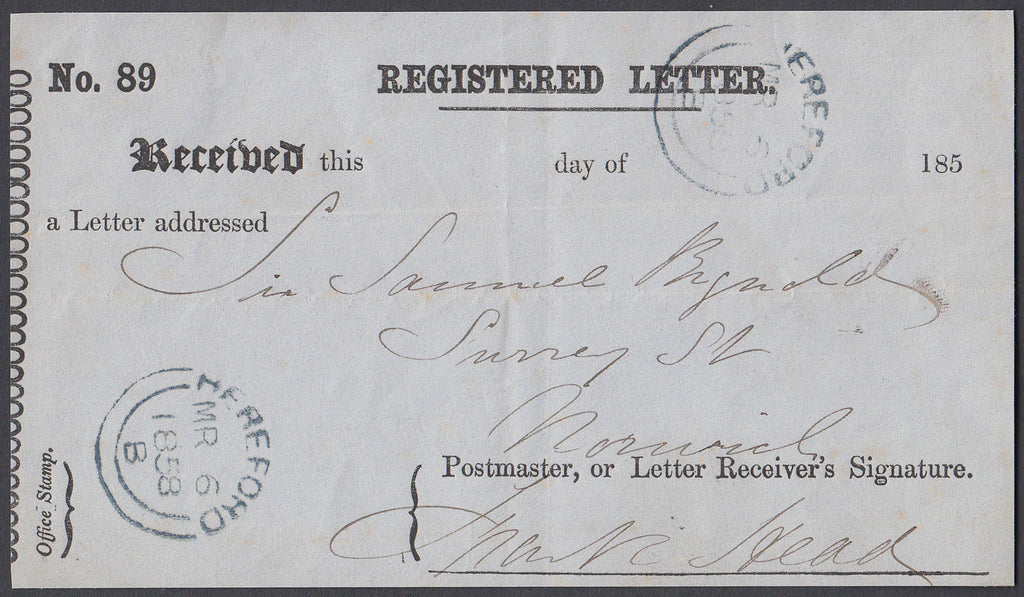 No. 89 REGISTERED LETTER.
Received this day of 185
a Letter addressed
Sir Samuel Bignold
Surrey St
Norwich
Postmaster, or Letter Receiver's Signature.
Frank Head
Office Stamp.
HEREFORD
MR 6
1858
B
HEREFORD
MR 6
1858
B